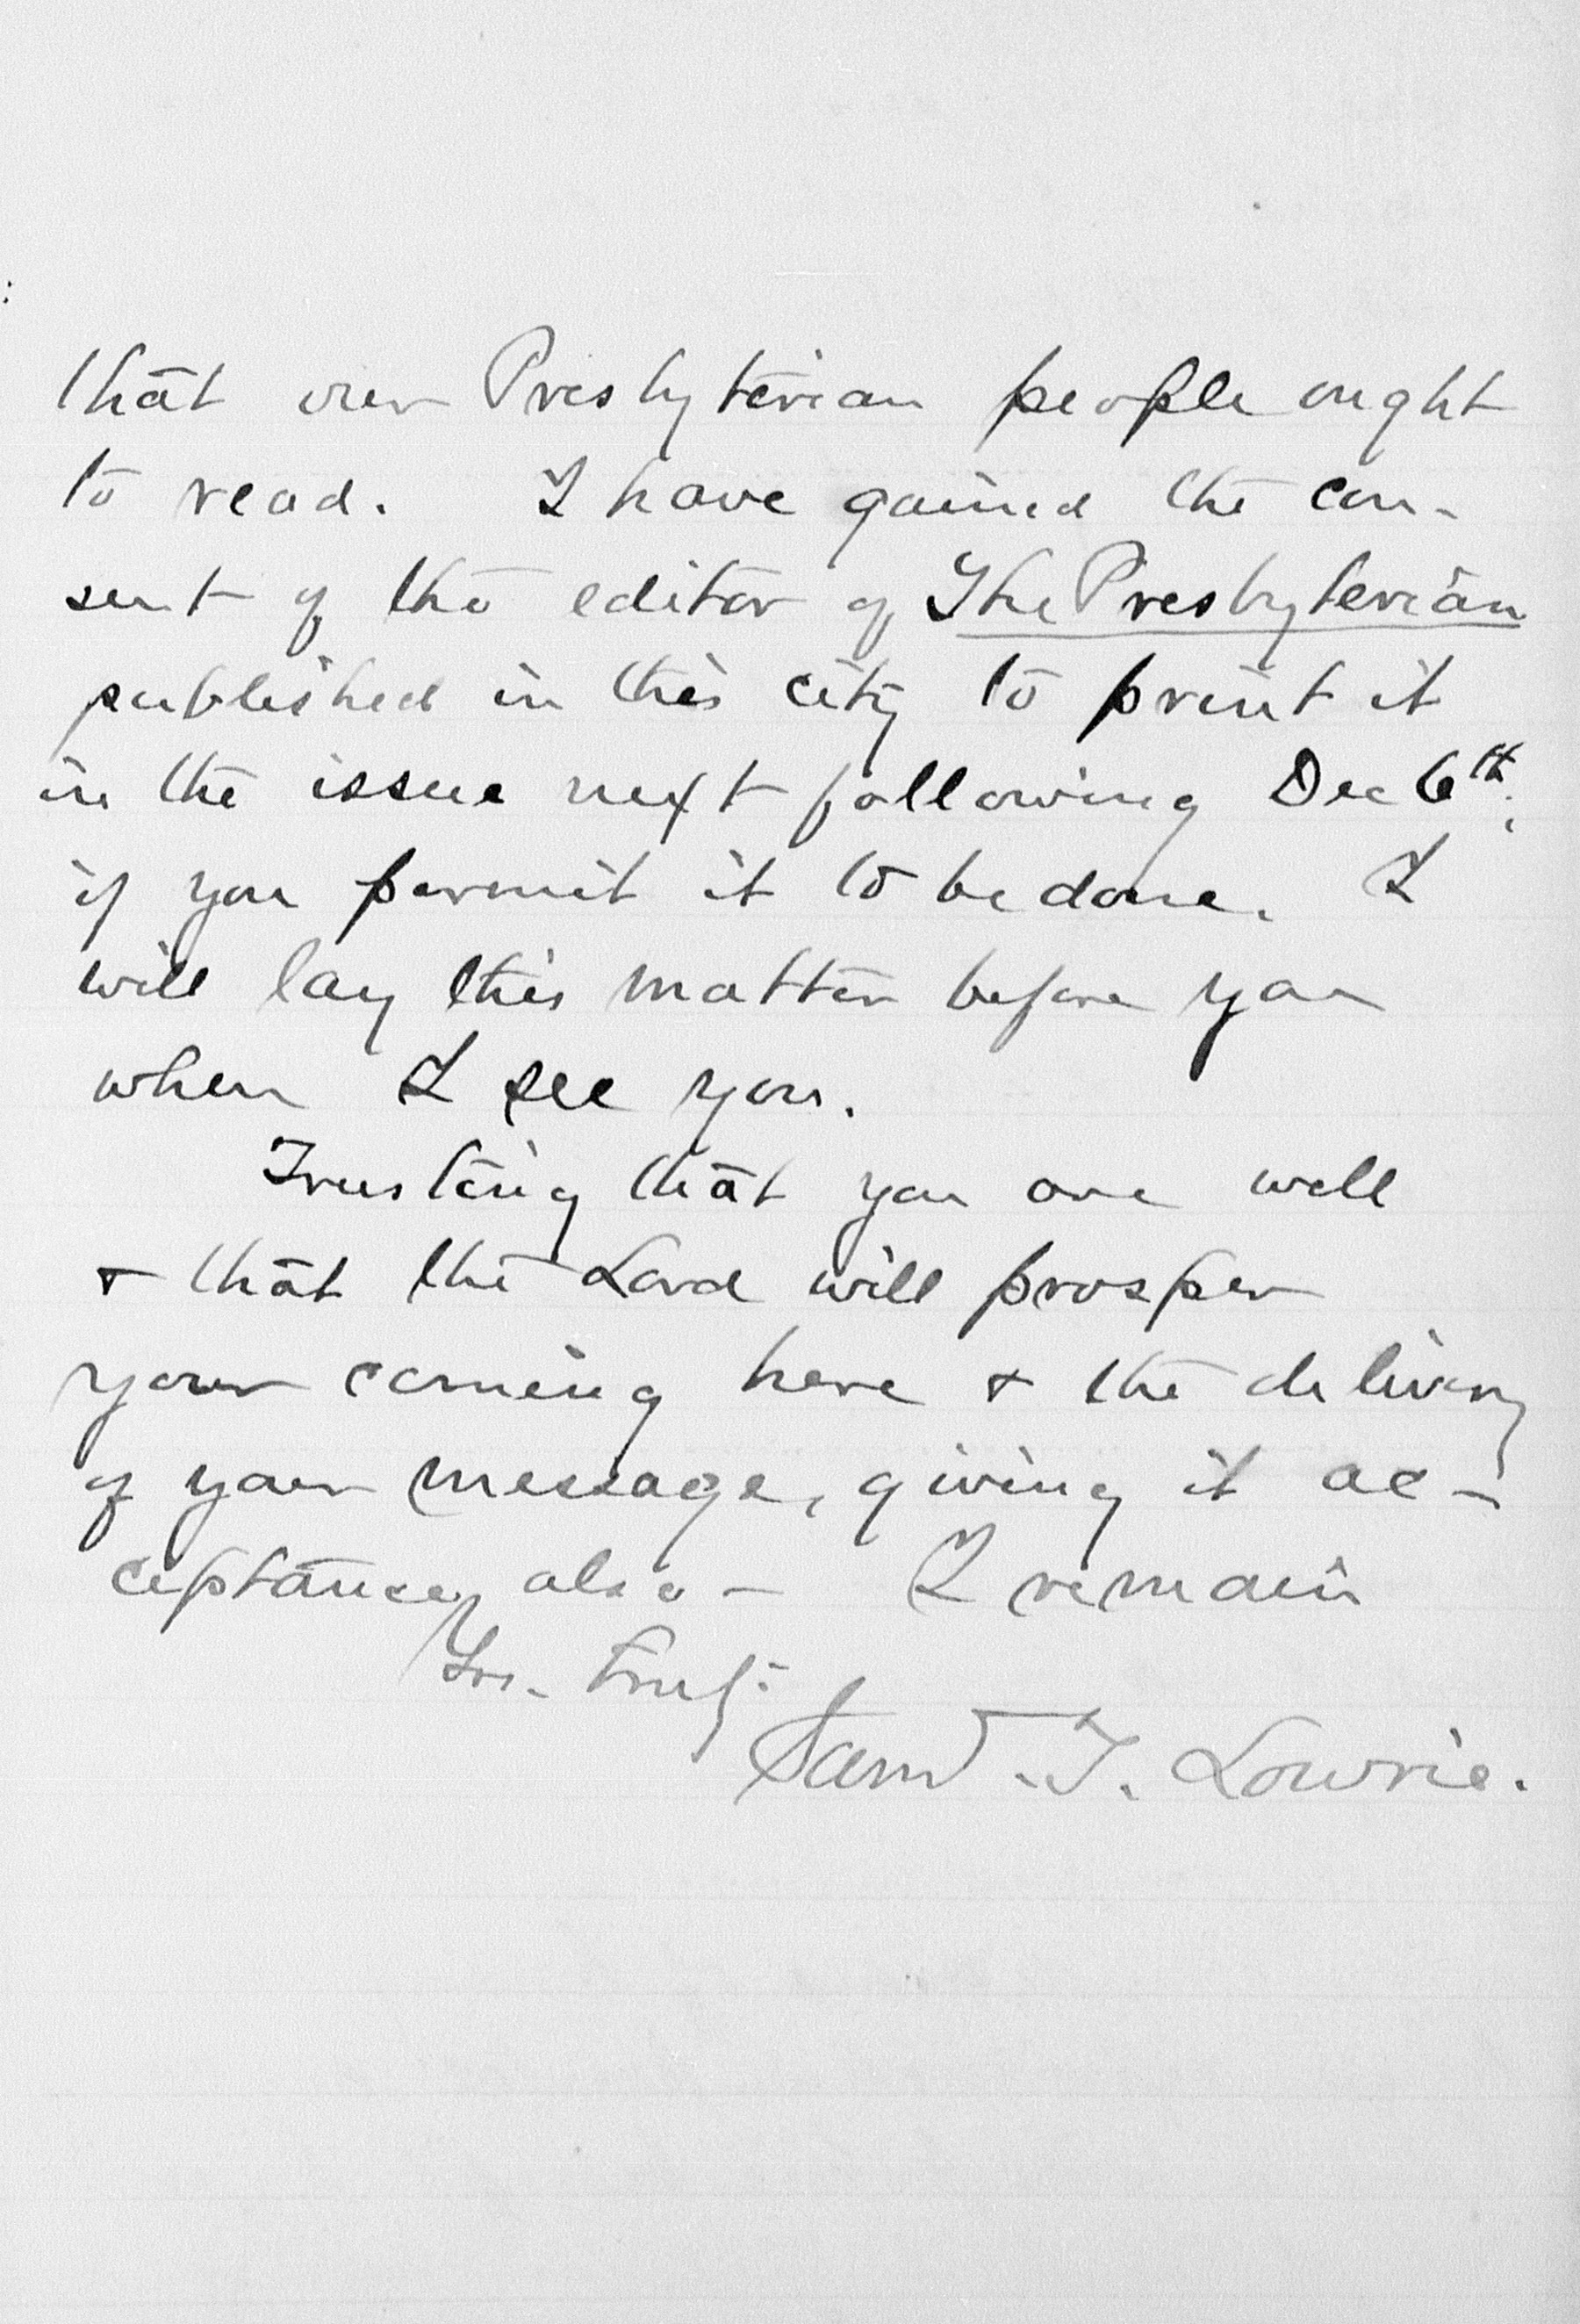 that our Presbyterian people ought
to read. I have gained the con-
sent of the editor of The Presbyterian
published in this city to print it
in the issue next following Dec 6th;
if you permit it to be done. I
will lay this matter before you
when I see you.
Trusting that you are well
& that the Lord will prosper
your coming here & the delivery
of your message, giving it ac-
ceptance, also – I remain
Yrs. truly:
Saml. T. Lowrie.